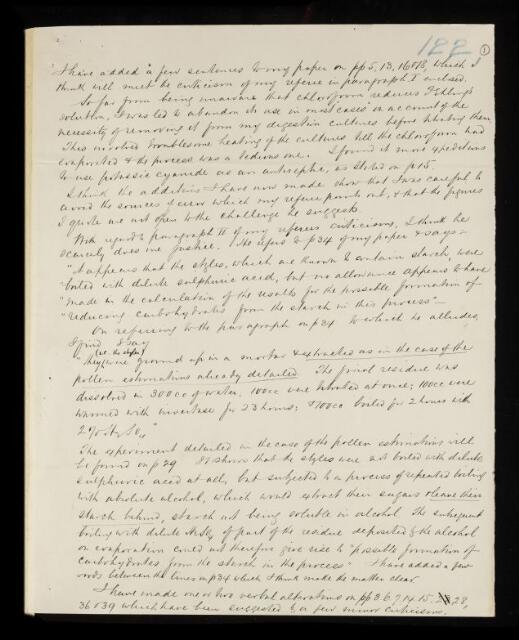 122 1
I have added a few sentences to my paper on pp 5, 13, 16 & 18, which I
think will meet the criticism of my referee in paragraph I enclosed.
So far from being unaware that chloroform reduces Fehling's
solution, I was led to abandon its use in most cases on account of the
necessity of removing it from my digestion cultures before titrating them
This involved troublesome heating of the cultures till the chloroform had
evaporated & the process was a tedious one. I found it more expeditious
to use potassic cyanide as an antiseptic, as stated on p 15
I think the additions I have now made show that I was careful to
avoid the sources of error which my referee points out, & that the figures
I quote are not open to the challenge he suggests.
With regard to paragraph II of my referees criticisms, I think he
scarcely does me justice. He refers to p 34 of my paper & says -
"It appears that the styles, which are known to contain starch, were
"boiled with dilute sulphuric acid, but no allowance appears to have
"made in the calculation of the results for the possible formation of
"reducing carbohydrates from the starch in this process" -
On referring to the paragraph on p 34 to which he alludes,
I find I say
(i.e. the styles)
"they were ground up in a mortar & extracted as in the case of the
pollen estimations already detailed. The final residue was
dissolved in 300 cc of water, 100 cc were titrated at once; 100 cc were
warmed with invertase for 23 hours; & 100 cc boiled for 2 hours with
2 % H2SO4"
The experiment detailed in the case of the pollen estimations will
be found on p 29 It shows that the styles were not boiled with dilute
sulphuric acid at all, but subjected to a process of repeated boiling
with absolute alcohol, which would extract their sugars & leave their
starch behind, starch not being soluble in alcohol The subsequent
boiling with dilute H2SO4 of part of the residue deposited by the alcohol
on evaporation could not therefore give rise to "possible formation of
carbohydrates from the starch in the process" I have added a few
words between the lines on p 34 which I think made the matter clear
I have made one or two verbal alterations on pp 3. 6. 7. 14. 15. 28,
36 & 39 which have been suggested by a few minor criticisms.